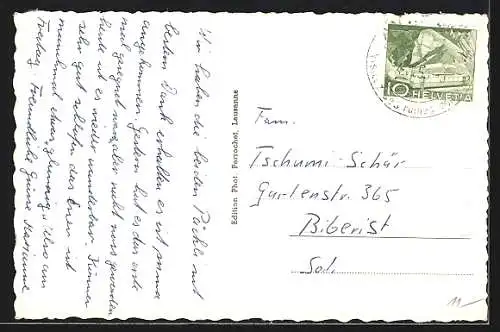 Wir haben die beiden Päckli mit
bestem Dank erhalten es ist prima
angekommen. Gestern hat es das erste
mal geregnet
heute ist es wieder wunderbar. Können
sehr gut schlafen das Essen ist
manchmal etwas also am
Freitag. Freundliche Grüsse Marianne
Edition Phot Perrochet, Lausanne
10 HELVETIA
Fam.
Tschumi-Schär
Gartenstr. 365
Biberist
Sol.